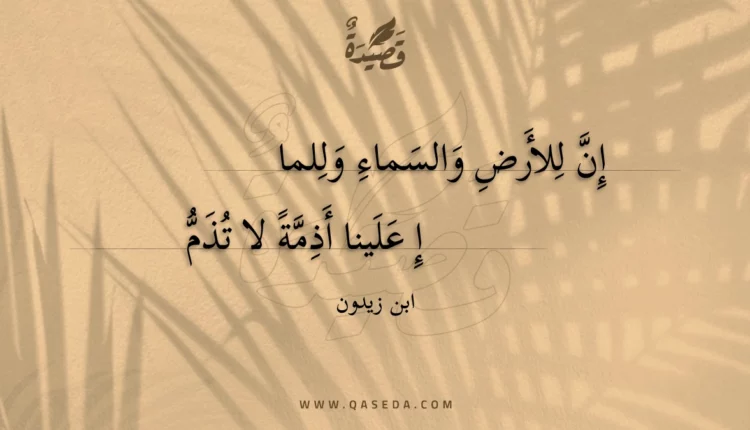 قَصِيدَةٌ
إِنَّ لِلأَرضِ وَالسَماءِ وَلِلما
إِ عَلَينا أَذِمَّةً لا تُذَمُّ
ابن زيدون
WWW.QASEDA.COM